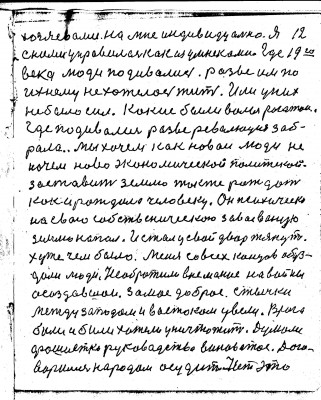 хозяевами. на мне индивидуално. Я 12
снами управился как из умнеками. Где 19
века люди подивалис. разве им по
ихнему не хотелос жит. Или у них
не было сил. Какие были воля рогатои.
Где подевался разве революция заб-
рала.. Мы хочем как новои люди не
ново экономической политикой.
заставит землю тысте рождат
как и рождала человеку. Он
на свого собственическою завоеваную
землю напал. И стал усвой двор тянут.
хуже чем было. Меня со всех концов
дали люди. Необротили внемание на воины
создавшои. замое доброе. стычки
между западом и востоком увели. Врага
были и били хотели уничтожит. Думали
руковадство виноватое. Дого-
воримся народом осудит. Нет это